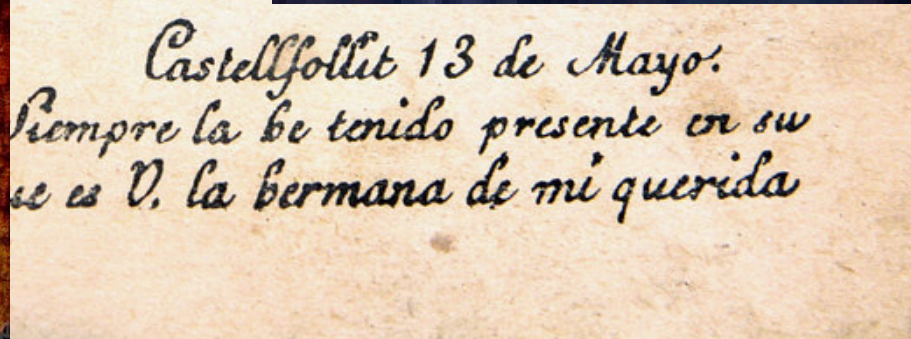 Castellfollit 13 de Mayo.
Siempre la he tenido presente en su
es V. la hermana de mi querida